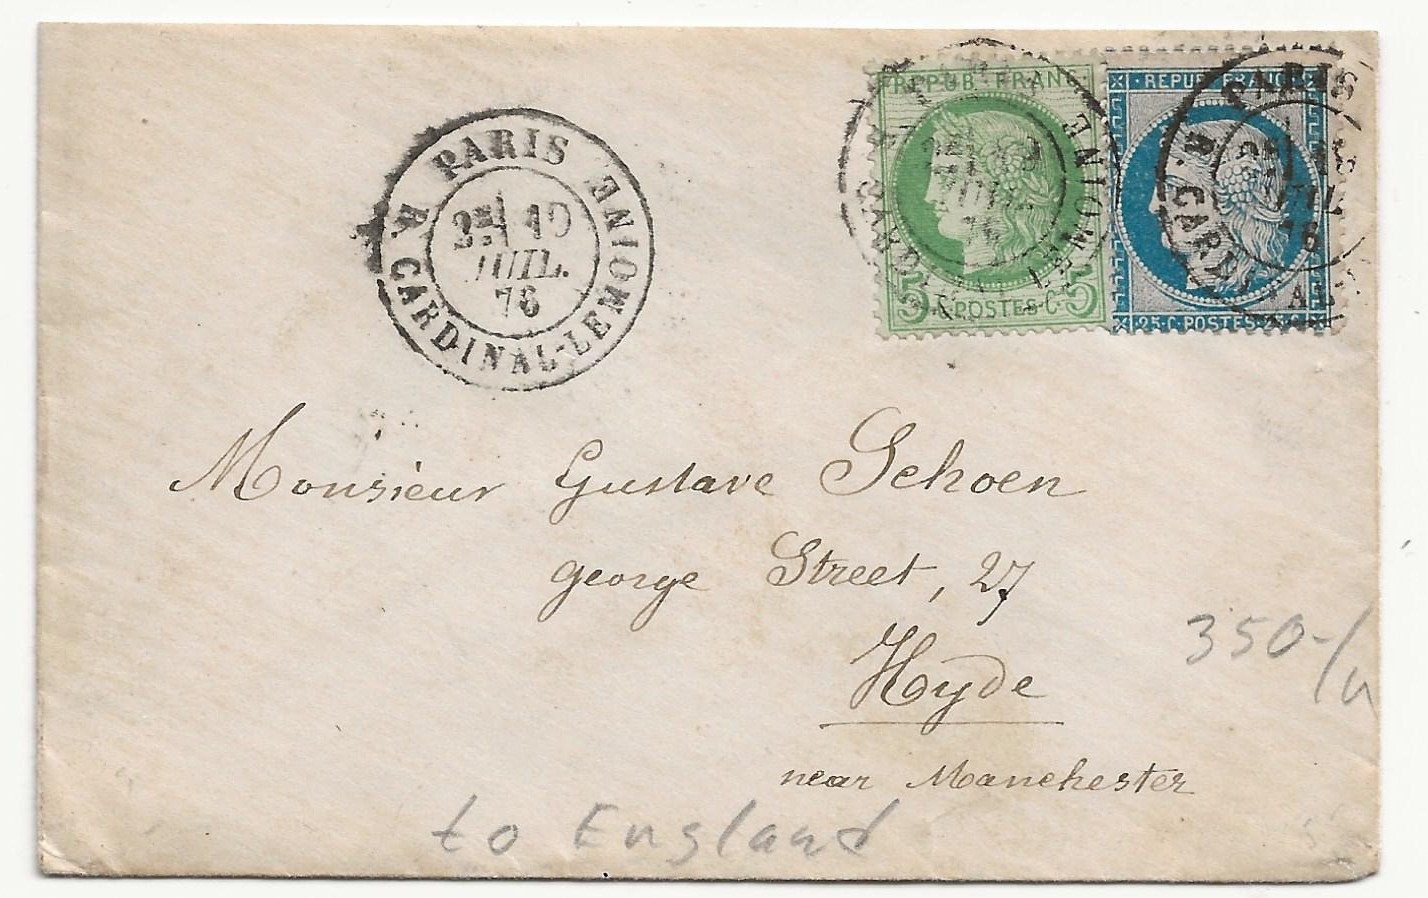 PARIS
R. CARDINAL-LEMOINE
2E 19
JUIL.
76
REPUB. FRANC.
5 C. POSTES C. 5
REPUB. FRANC.
25 C. POSTES 25 C.
PARIS
R. CARD
Monsieur Gustave Schoen
george Street, 27
Hyde
near Manchester
350-/u
to England